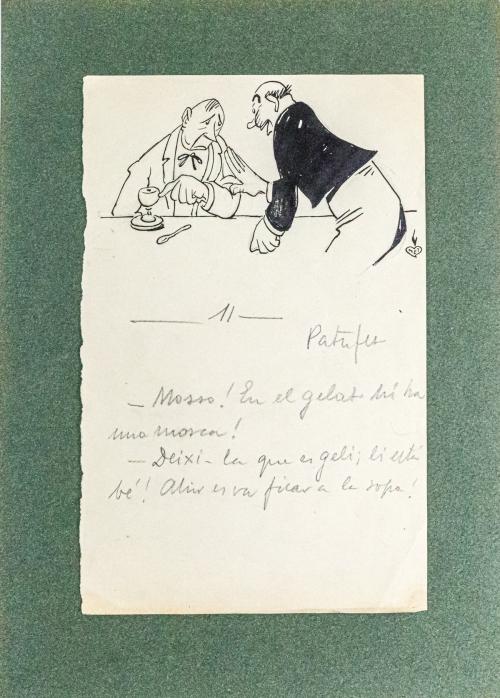 11
Patufet
— Mosso! En el gelat hi ha
una mosca!
— Deixi-la que es geli; li està
bé! Ahir es va ficar a la sopa!